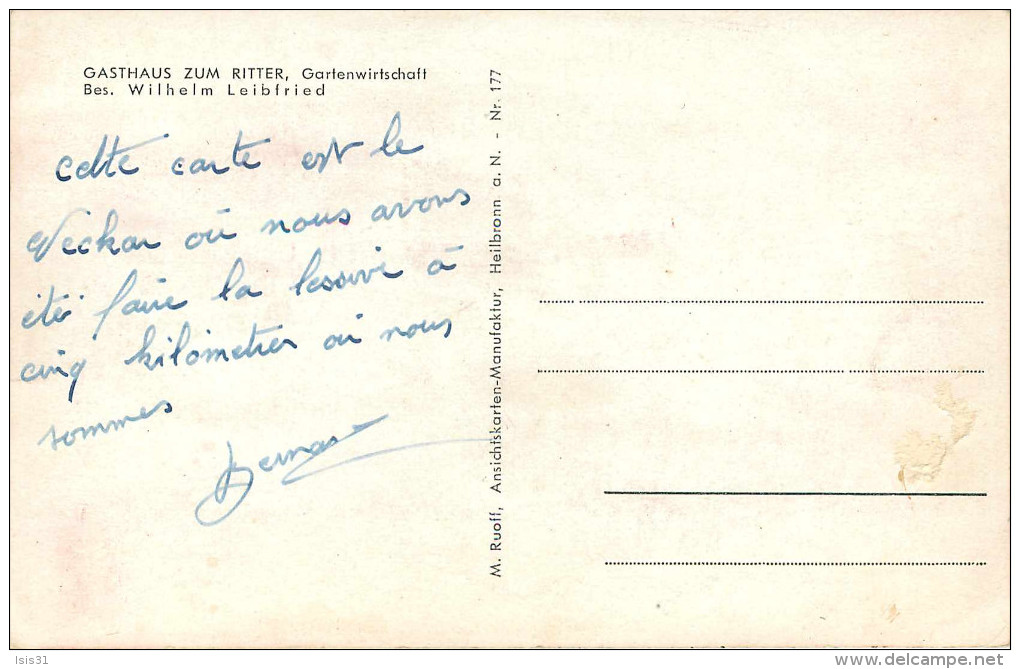 GASTHAUS ZUM RITTER, Gartenwirtschaft
Bes. Wilhelm Leibfried
cette carte est le
Neckar où nous avons
été faire la lessive à
cinq kilometres où nous
sommes
Bernard
M. Ruoff, Ansichtskarten-Manufaktur, Heilbronn a. N. - Nr. 177
Isis31
www.delcampe.net